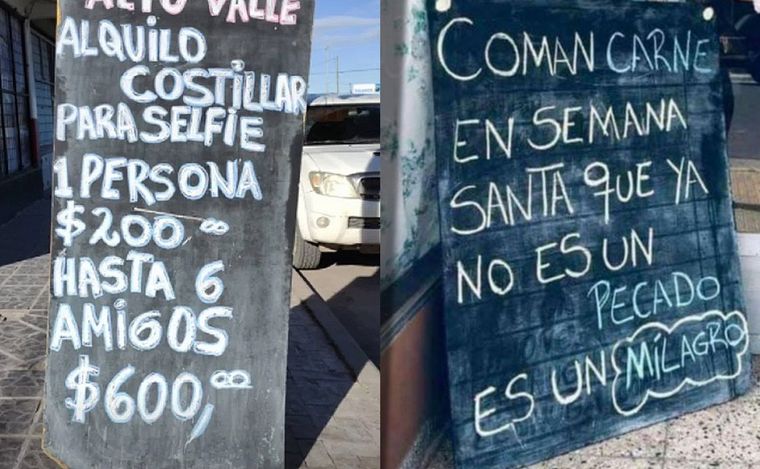 ALTO VALLE
ALQUILO
COSTILLAR
PARA SELFIE
1 PERSONA
$200 00
HASTA 6
AMIGOS
$600,00
COMAN CARNE
EN SEMANA
SANTA QUE YA
NO ES UN
PECADO
ES UN MILAGRO